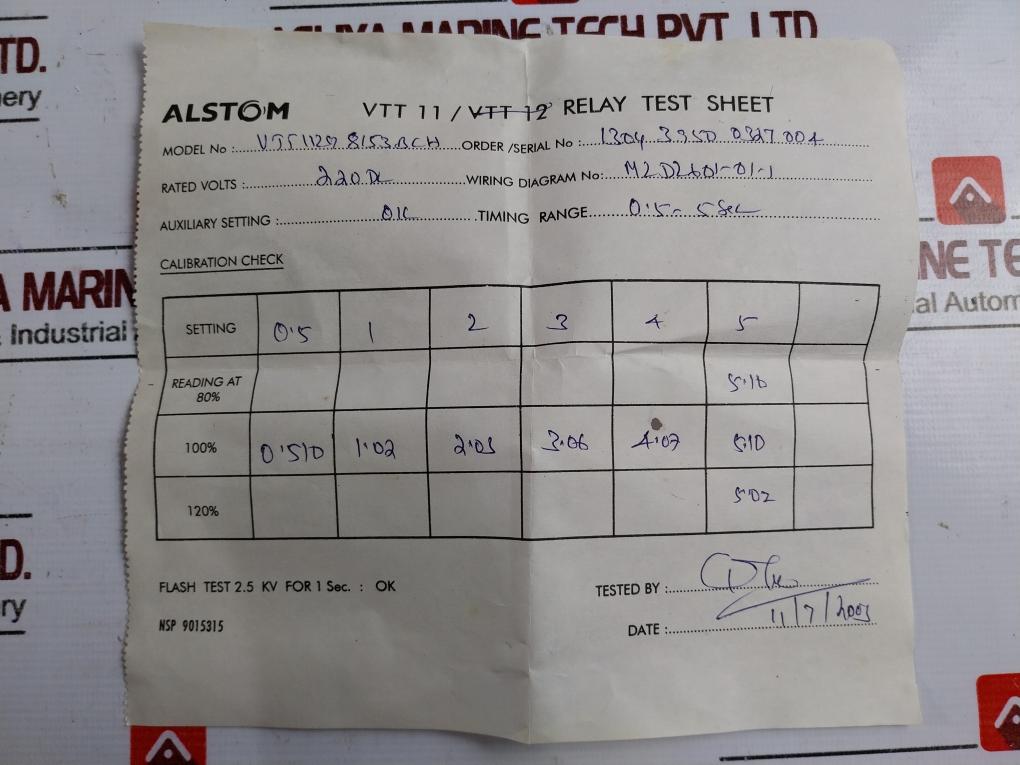 TD.
ASHYA MARINE TECH PVT. LTD.
ery
ALSTOM VTT 11 / VTT 12 RELAY TEST SHEET
MODEL No : VTT1129 8153BCH ORDER /SERIAL No : 1304 3950 0327 004
RATED VOLTS : 220 DC WIRING DIAGRAM No: M2D2601-01-1
AUXILIARY SETTING : OK TIMING RANGE 0.5 - 5 Sec
CALIBRATION CHECK
A MARIN
& Industrial
NE TE
al Autom
SETTING 0.5 1 2 3 4 5
READING AT 80% 5.10
100% 0.510 1.02 2.03 3.06 4.07 5.10
120% 5.02
D.
ry
FLASH TEST 2.5 KV FOR 1 Sec. : OK TESTED BY :
NSP 9015315 DATE : 11/7/2003